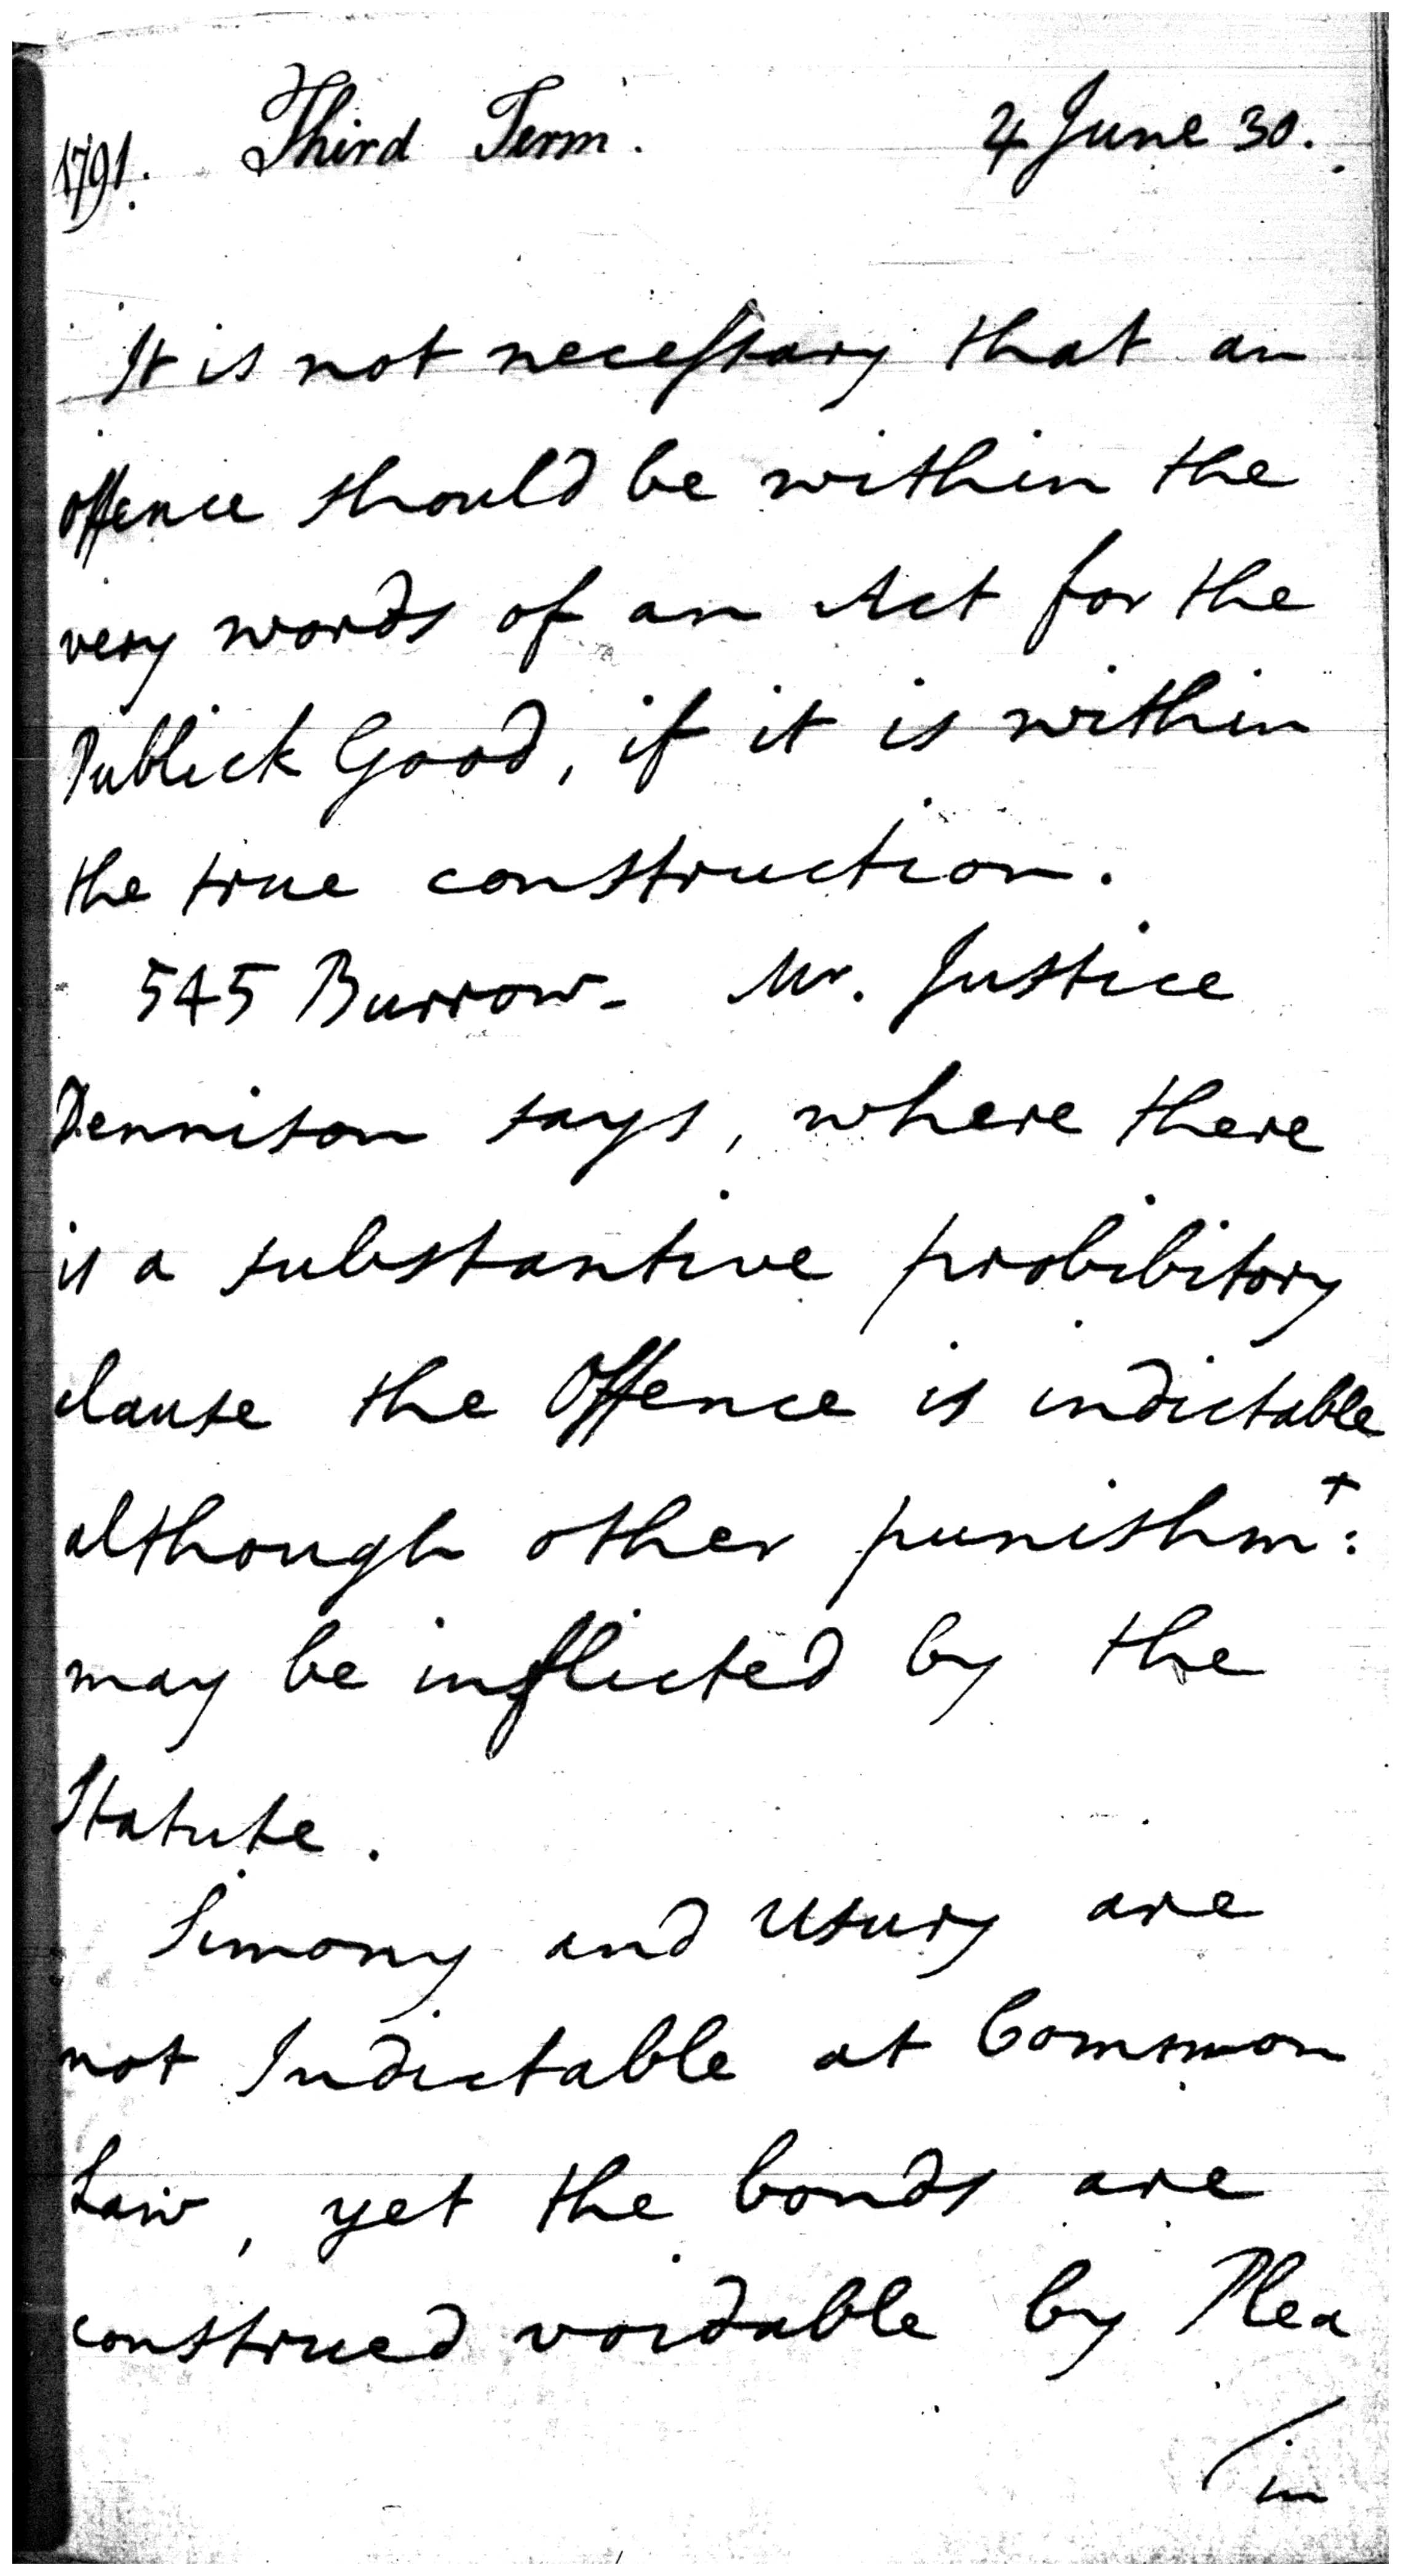 1791. Third Term. 4 June 30.
It is not necessary that an
offence should be within the
very words of an Act for the
Publick Good, if it is within
the true construction.
545 Burrow - Mr. Justice
Dennison says, where there
is a substantive prohibitory
clause the Offence is indictable
although other punishmt:
may be inflicted by the
Statute.
Simony and Usury are
not Indictable at Common
Law, yet the bonds are
construed voidable by Plea
/in